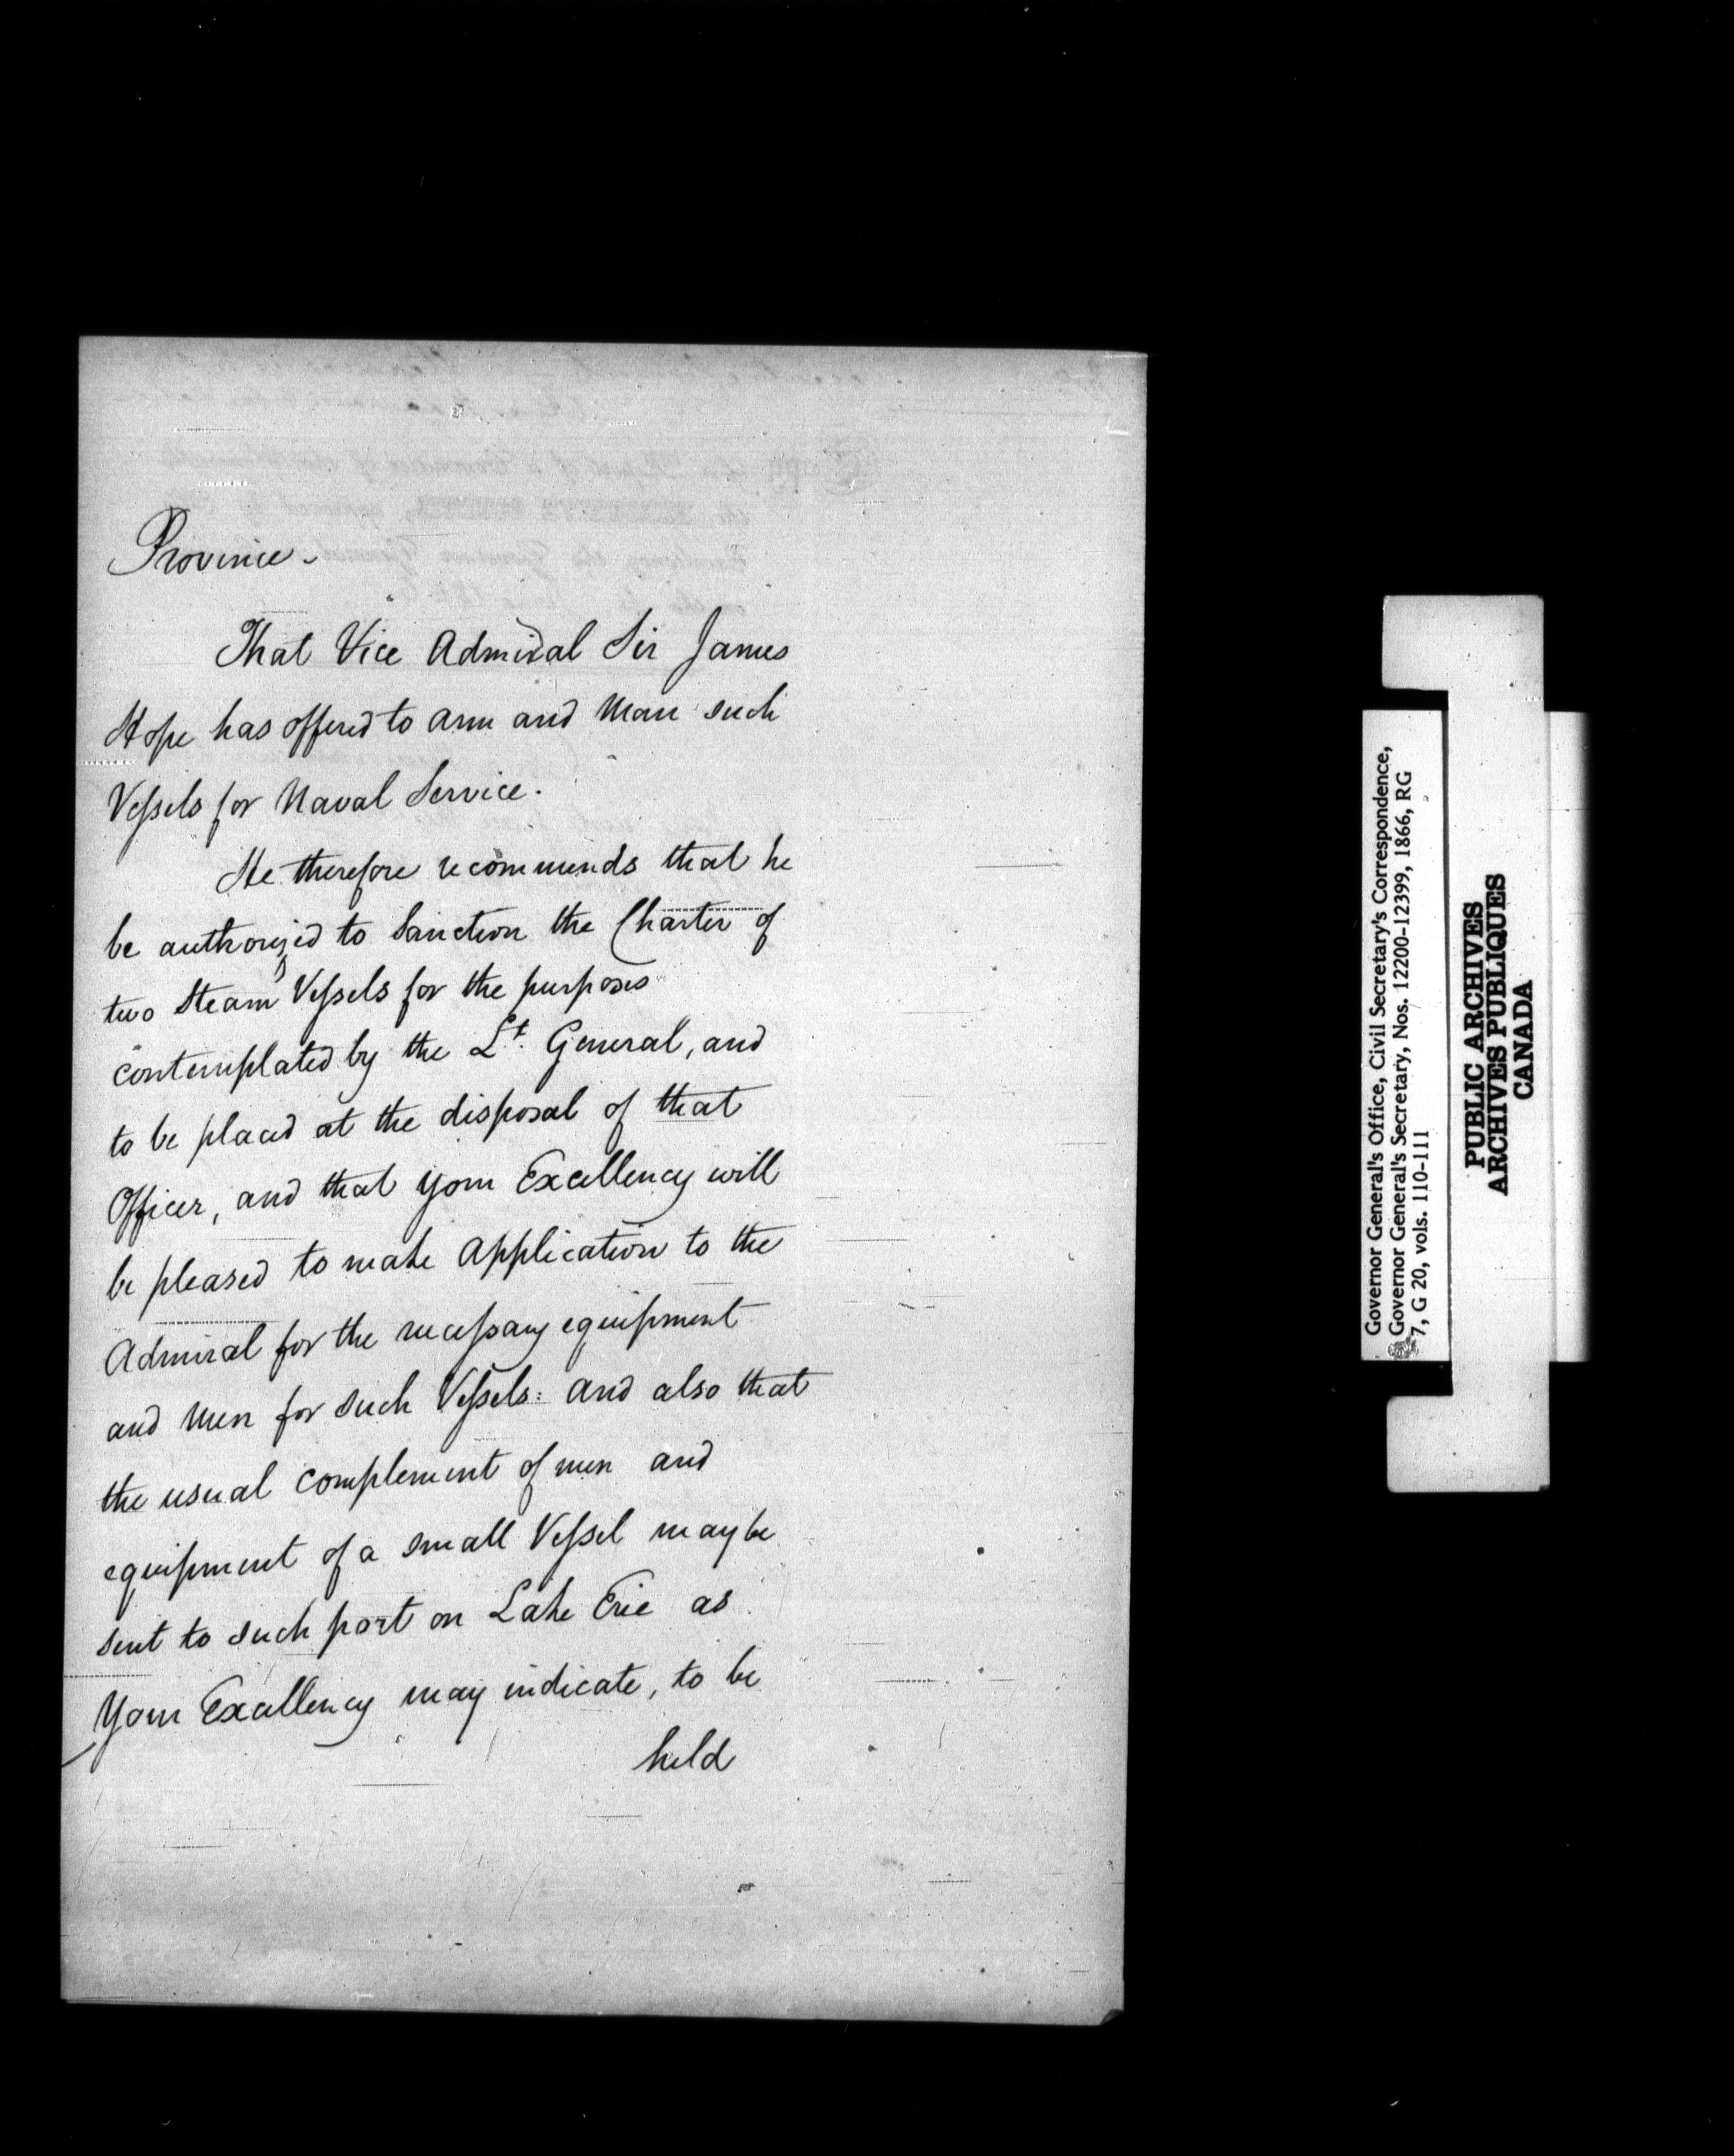 Province.
That Vice Admiral Sir James
Hope has offered to arm and Man such
Vessels for Naval Service.
He therefore recommends that he
be authorized to Sanction the Charter of
two Steam Vessels for the purposes
contemplated by the Lt. General, and
to be placed at the disposal of that
Officer, and that your Excellency will
be pleased to make application to the
Admiral for the necessary equipment
and Men for such Vessels: and also that
the usual complement of men and
equipment of a small Vessel may be
sent to such port on Lake Erie as
Your Excellency may indicate, to be
held
Governor General's Office, Civil Secretary's Correspondence,
Governor General's Secretary, Nos. 12200-12399, 1866, RG
7, G 20, vols. 110-111
PUBLIC ARCHIVES
ARCHIVES PUBLIQUES
CANADA